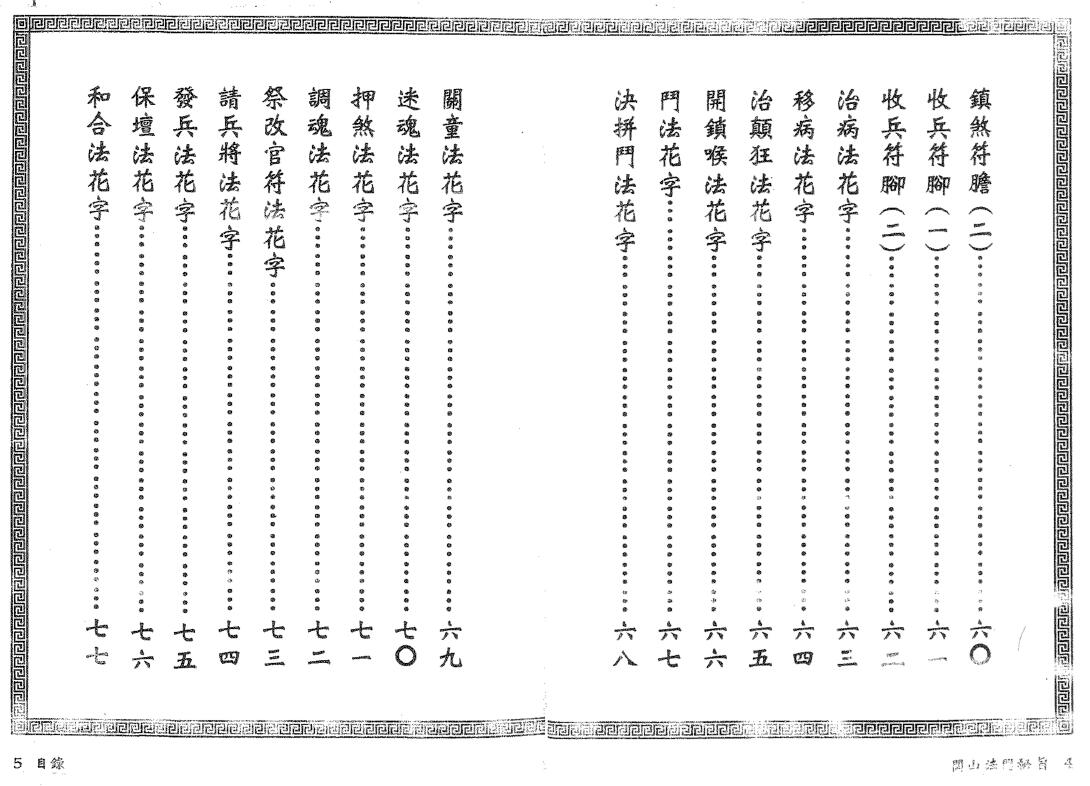 鎮煞符膽(二)……六〇
收兵符腳(一)……六一
收兵符腳(二)……六二
治病法花字……六三
移病法花字……六四
治顛狂法花字……六五
開鎖喉法花字……六六
鬥法花字……六七
決拼鬥法花字……六八
閭山法門秘旨 4
關童法花字……六九
迷魂法花字……七〇
押煞法花字……七一
調魂法花字……七二
祭改官符法花字……七三
請兵將法花字……七四
發兵法花字……七五
保壇法花字……七六
和合法花字……七七
5 目錄